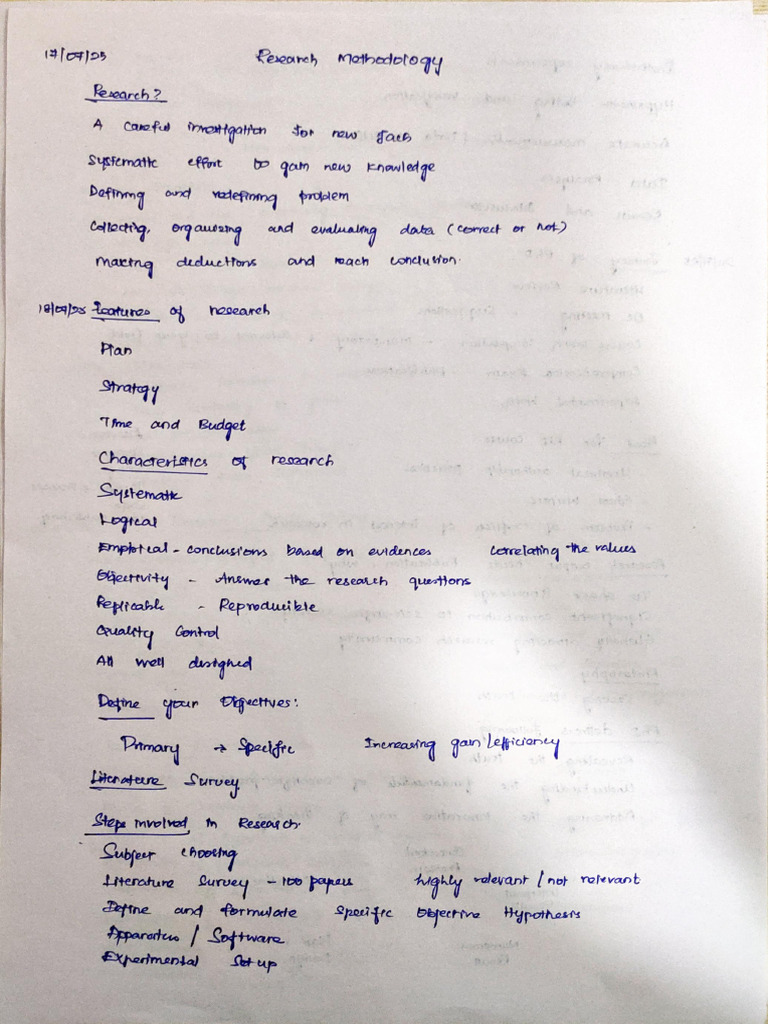 17/07/25 Research Methodology
Research?
A careful investigation for new facts
Systematic effort to gain new knowledge
Defining and redefining problem
Collecting, organizing and evaluating data (correct or not)
Making deductions and reach conclusion.
18/07/25 Features of research
Plan
Strategy
Time and Budget
Characteristics of research
Systematic
Logical
Empirical - conclusions based on evidences correlating the values
Objectivity - Answer the research questions
Replicable - Reproducible
Quality Control
All well designed
Define your Objectives:
Primary → Specific Increasing gain/efficiency
Literature Survey
Steps involved in Research.
Subject choosing
Literature Survey - 100 papers highly relevant / not relevant
Define and formulate specific Objective Hypothesis
Apparatus / Software
Experimental Set up